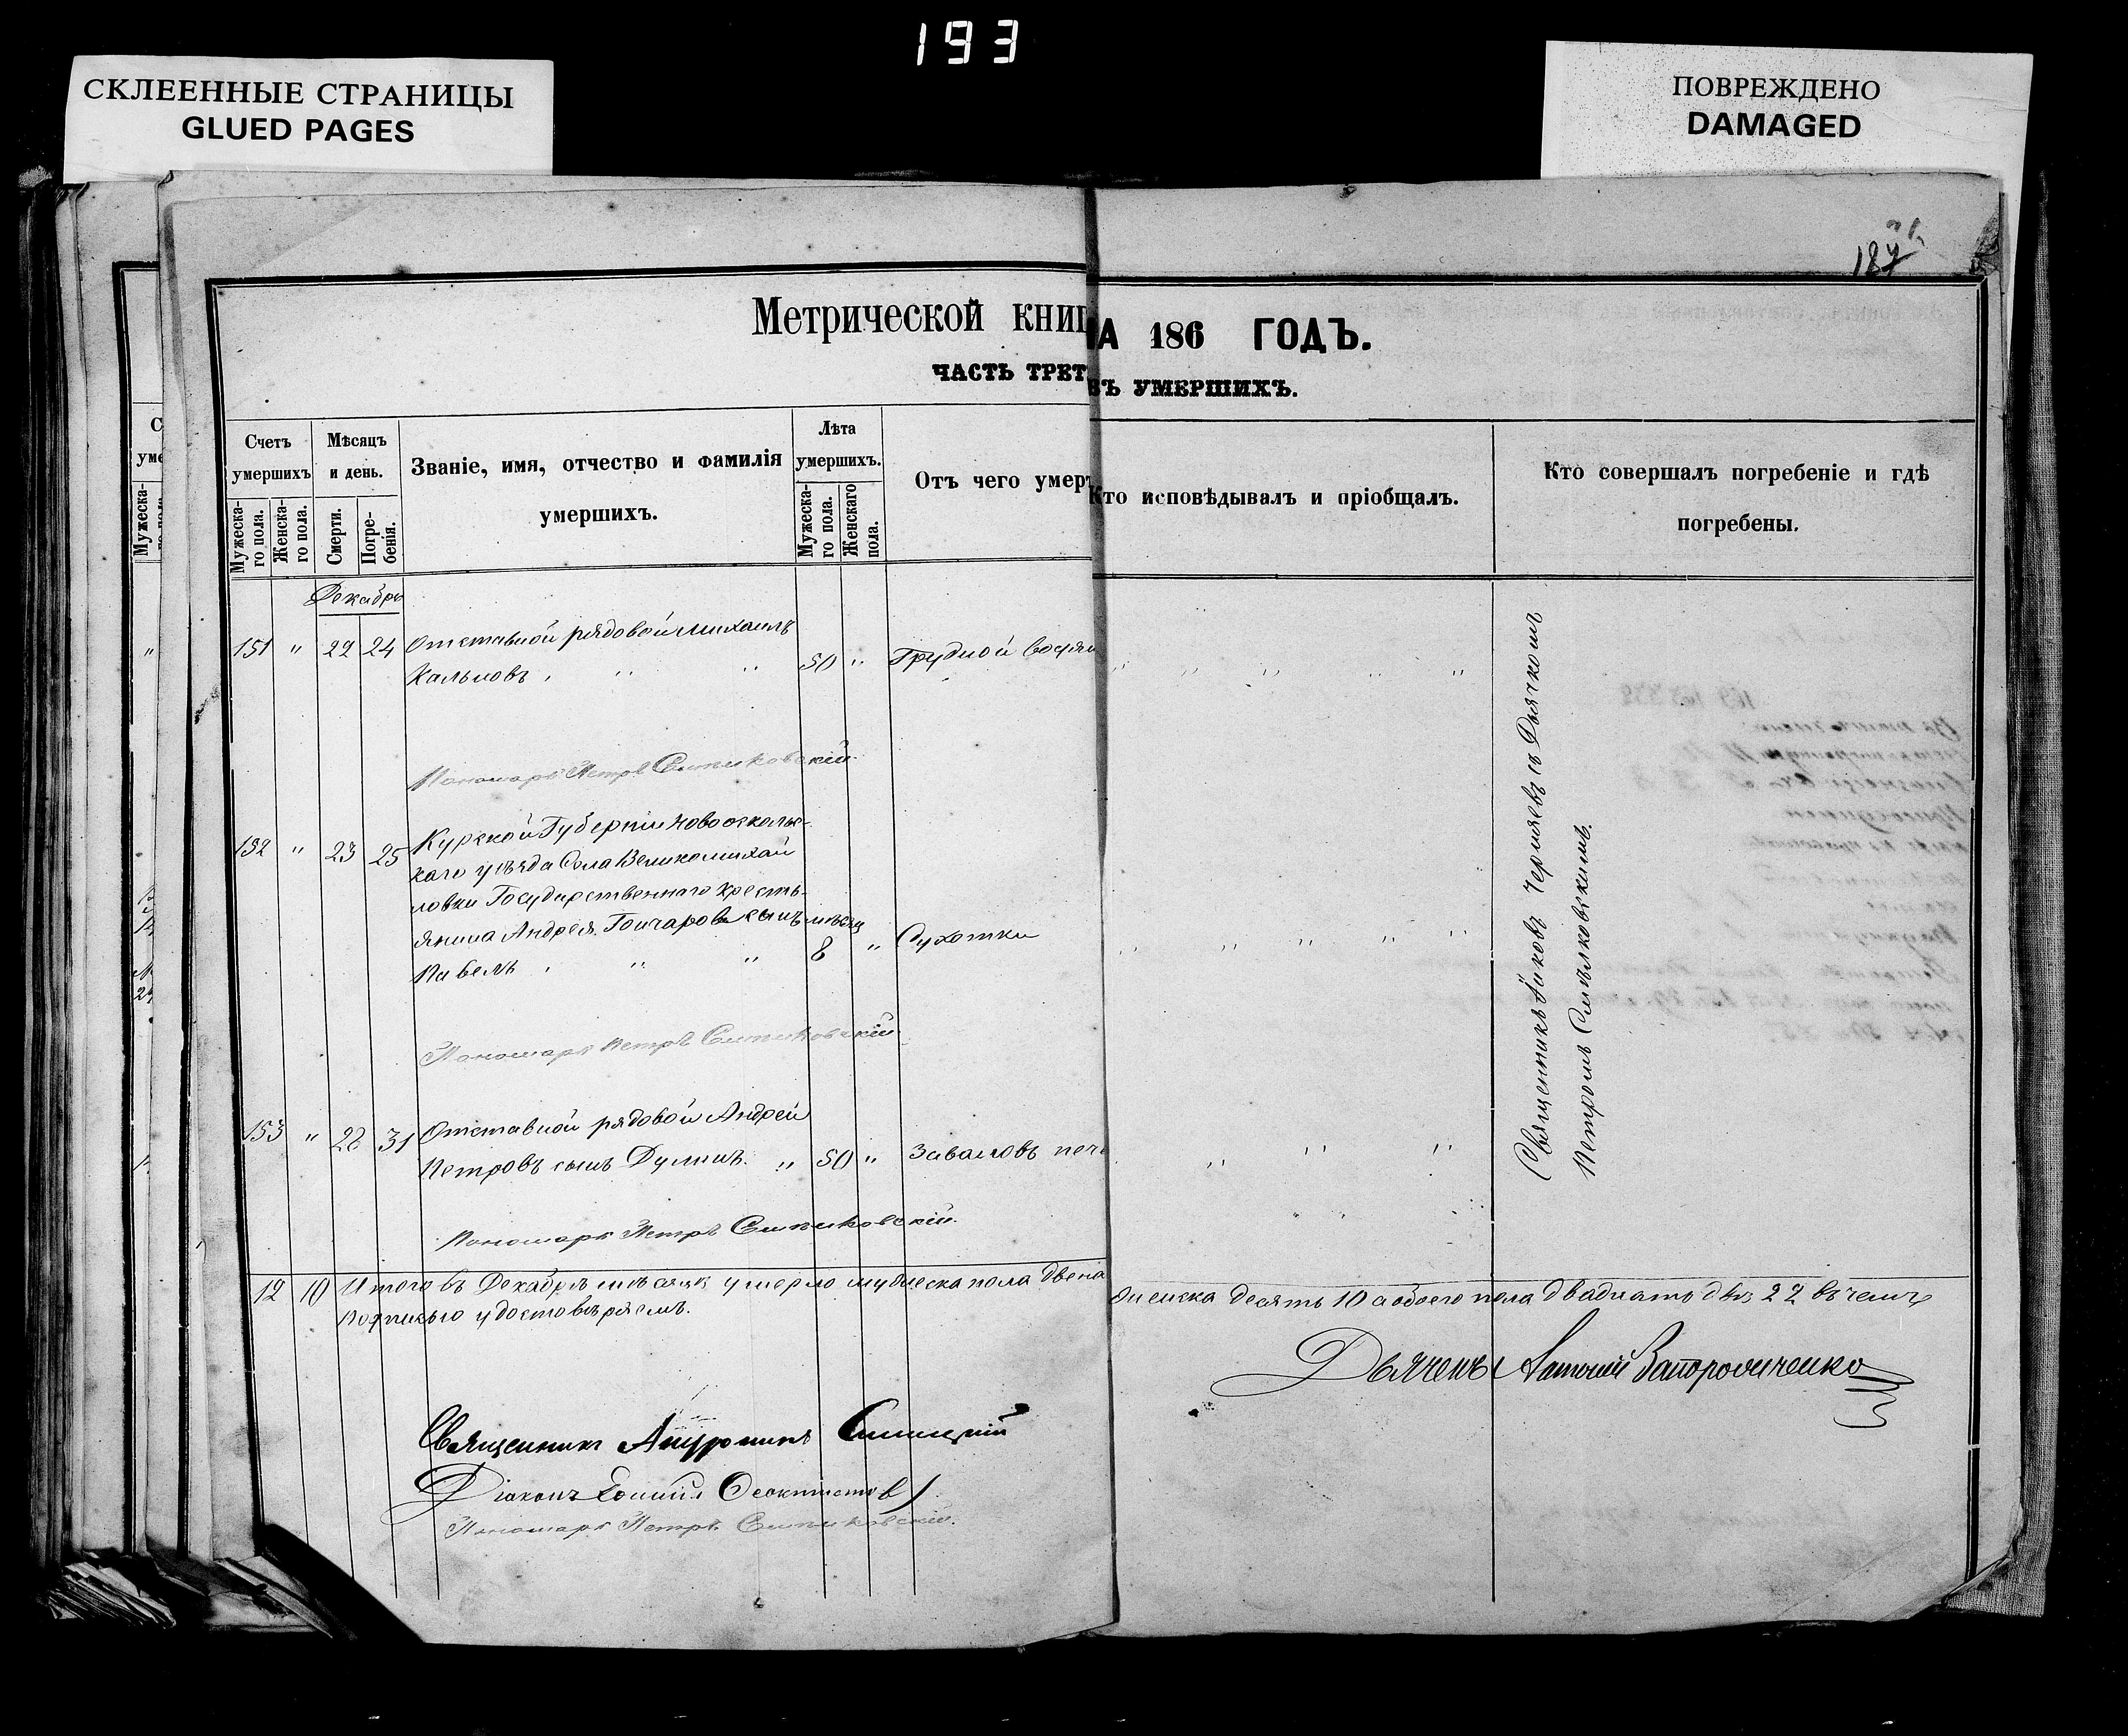 193
СКЛЕЕННЫЕ СТРАНИЦЫ
GLUED PAGES
ПОВРЕЖДЕНО
DAMAGED
187
Метрической книг
НА 186 ГОДЪ.
ЧАСТЬ ТРЕТ
ВЪ УМЕРШИХЪ.
Счетъ умершихъ
Мужеска-го пола.
Женска-го пола.
Мѣсяцъ и день.
Смерти.
Погре-бенія.
Званіе, имя, отчество и фамилія
умершихъ.
Лѣта умершихъ.
Мужеска-го пола.
Женскаго пола.
Отъ чего умер
Кто исповѣдывалъ и пріобщалъ.
Кто совершалъ погребеніе и гдѣ
погребены.
Декабрь
151 " 22 24 Отставной рядовой Михаилъ
Кальновъ , " " 50 " Грудной
Пономарь Петръ
152 " 23 25 Курской Губерніи Новоосколь-
каго уѣзда Села Великомихай
ловки Государственнаго кресть-
янина Андрея Гончарова сынъ мѣсяц
Павелъ , " " 8 " Сухотки
Пономарь Петръ
153 " 28 31 Отставной рядовой Андрей
Петровъ сынъ " 50 " Заваловъ печ
Пономарь Петръ
Священникъ Іаковъ Черняевъ съ Дьячкомъ
Петромъ
12 10 Итого въ Декабрѣ мѣсяцѣ умерло мужеска пола двена
женска десять 10 а обоего пола двадцать два 22 въ чемъ
подписью удостовѣряемъ.
Дьячекъ Антоній Запорожченко
Священникъ
Діаконъ Феоктистов
Пономарь Петръ